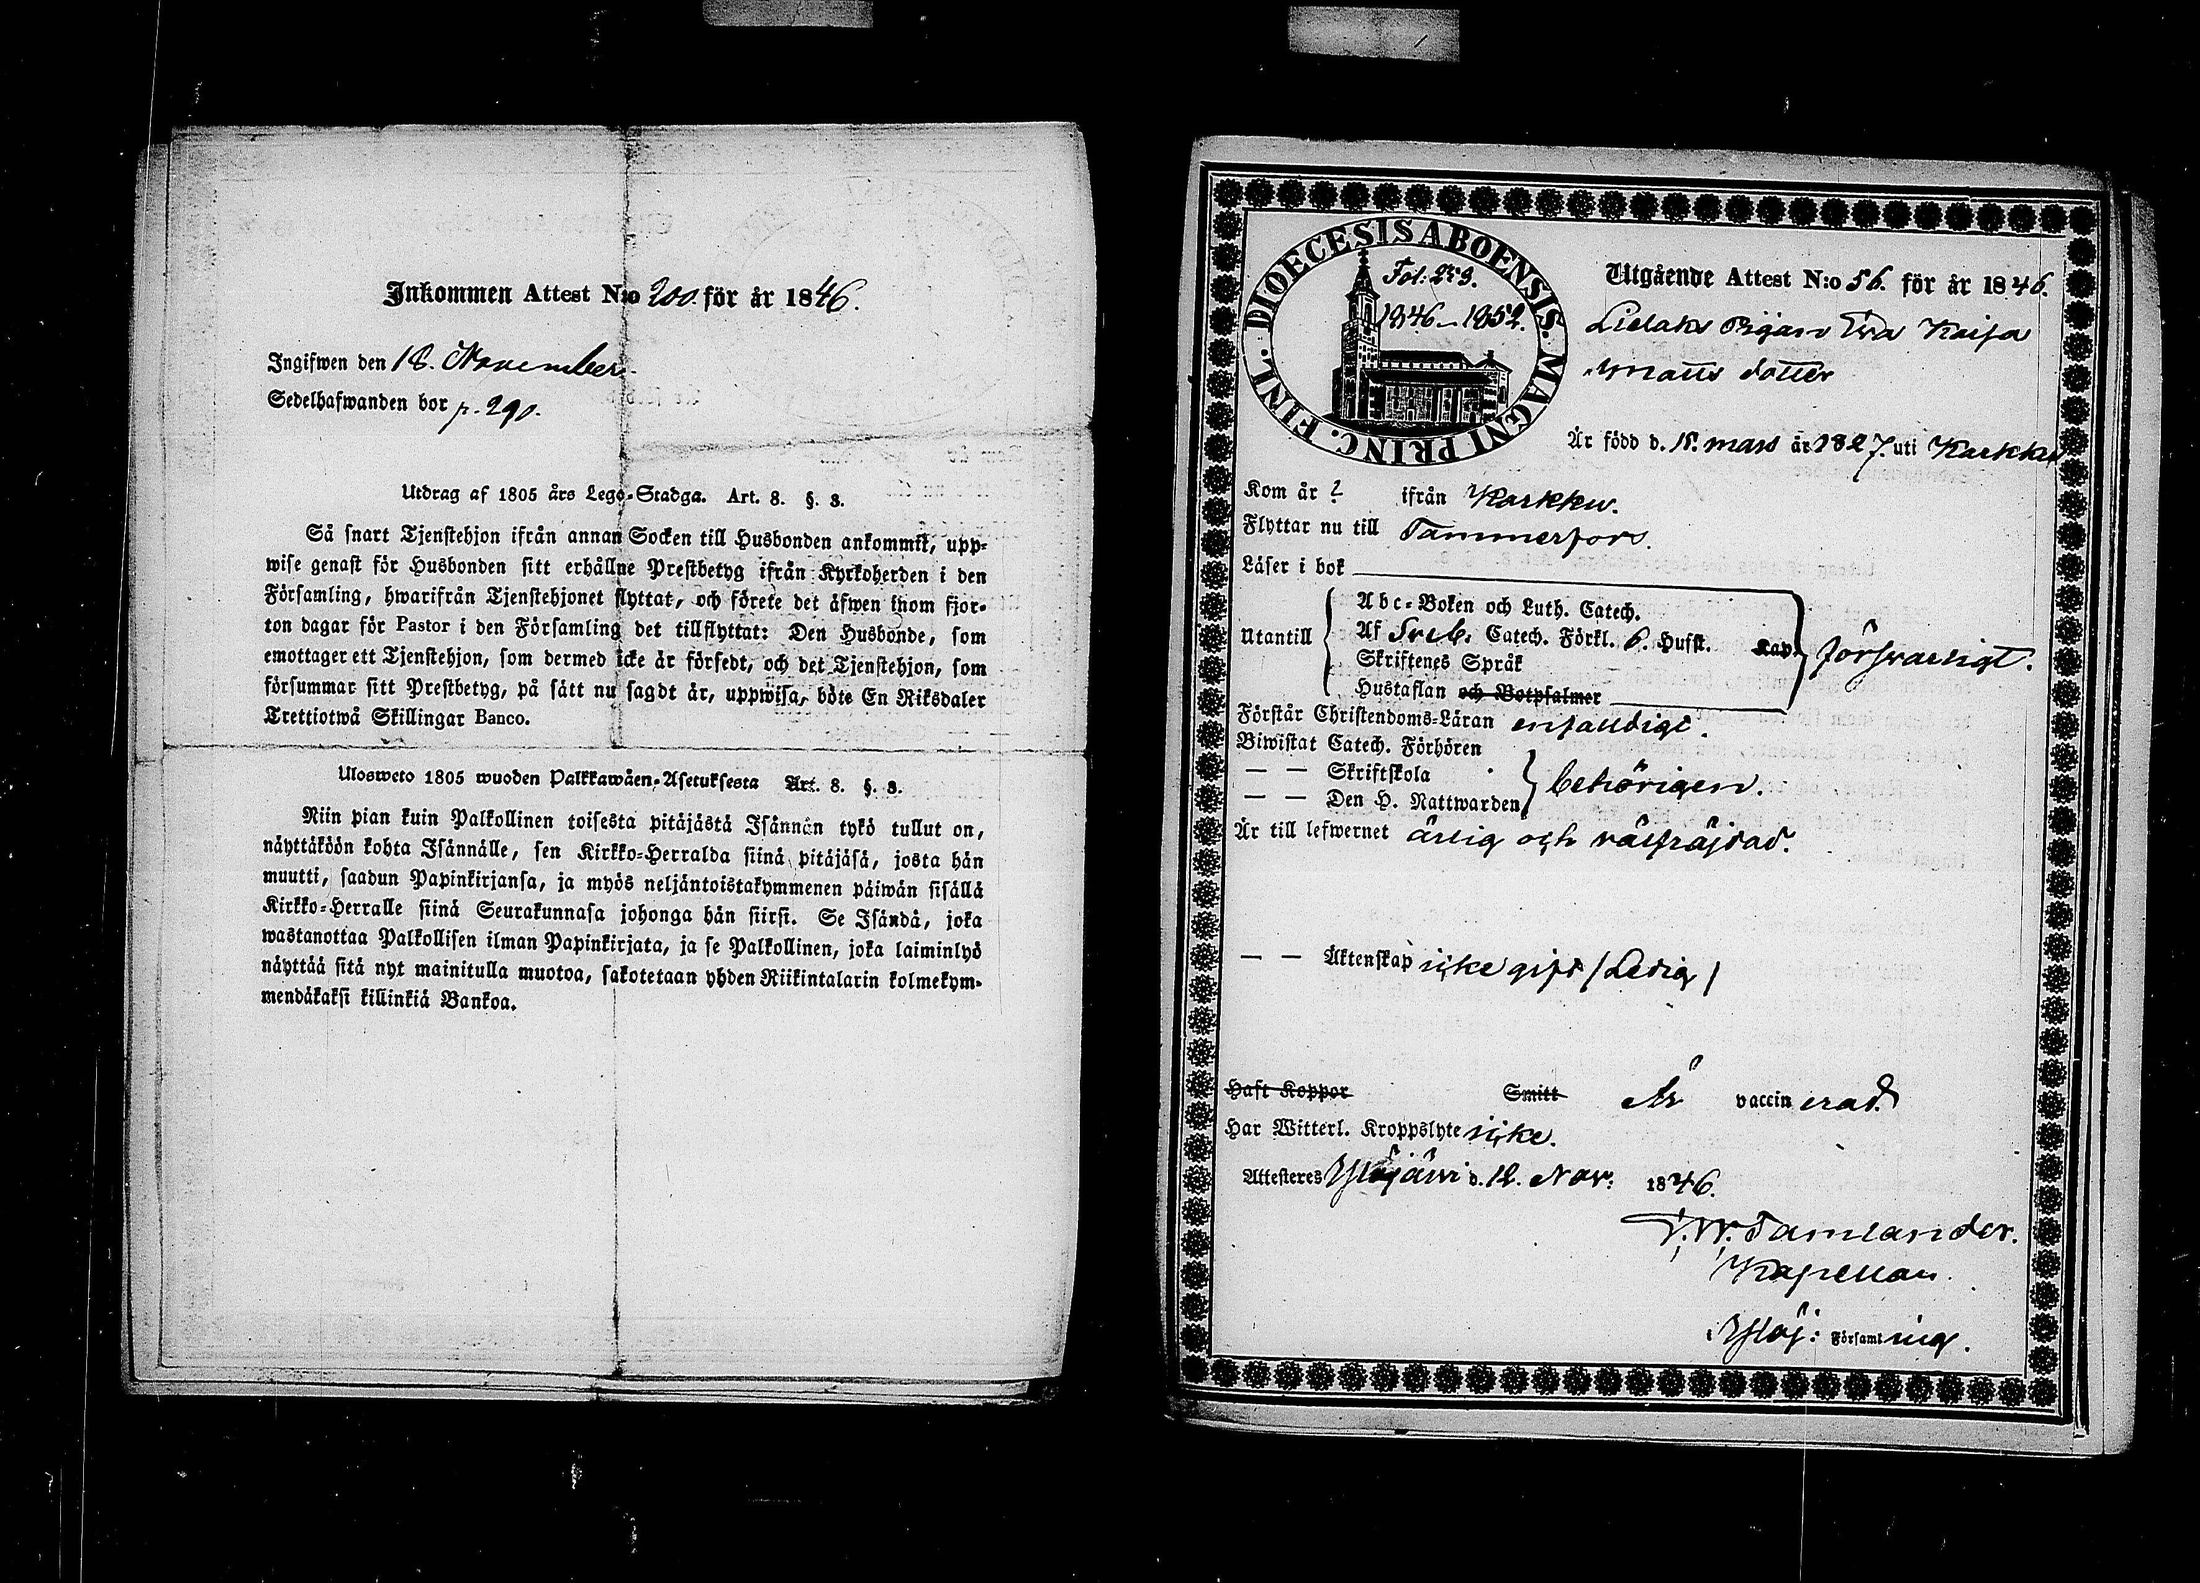 Inkommen Attest N:o 200. för år 1846.
Ingifwen den 18. November.
Sedelhafwanden bor p. 290.
Utdrag af 1805 års Lego-Stadga. Art. 8. §. 3.
Så snart Tjenstehjon ifrån annan Socken till Husbonden ankommit, upp-
wise genast för Husbonden sitt erhållne Prestbetyg ifrån Kyrkoherden i den
Församling, hwarifrån Tjenstehjonet flyttat, och förete det äfwen inom fjor-
ton dagar för Pastor i den Församling det tillflyttat: Den Husbonde, som
emottager ett Tjenstehjon, som dermed icke är försedt, och det Tjenstehjon, som
försummar sitt Prestbetyg, på sätt nu sagdt är, uppwisa, böte En Riksdaler
Trettiotwå Skillingar Banco.
Ulosweto 1805 wuoden Palkkawäen-Asetuksesta Art. 8. §. 3.
Niin pian kuin Palkollinen toisesta pitäjästä Isännän tykö tullut on,
näyttäköön kohta Isännälle, sen Kirkko-Herralda siinä pitäjäsä, josta hän
muutti, saadun Papinkirjansa, ja myös neljäntoistakymmenen päiwän sisällä
Kirkko-Herralle siinä Seurakunnasa johonga hän siirsi. Se Isändä, joka
wastanottaa Palkollisen ilman Papinkirjata, ja se Palkollinen, joka laiminlyö
näyttää sitä nyt mainitulla muotoa, sakotetaan yhden Riikintalarin kolmekym-
mendäkaksi killinkiä Bankoa.
DIOECESIS ABOENSIS. MAGNI PRINC. FINL.
Fol: 253.
1846–1852.
Utgående Attest N:o 56. för år 1846.
Pigan Eva Kaisa
Matts dotter
Är född d. 15. mars år 1827. uti Karkku
Kom år ? ifrån Karkku.
Flyttar nu till Tammerfors.
Läser i bok
Utantill
Abc-Boken och Luth. Catech.
Af Sveb. Catech. Förkl. 6. Hufst. Kap.
Skriftenes Språk
Hustaflan och Botpsalmer
försvarligt.
Förstår Christendoms-Läran enfaldigt.
Biwistat Catech. Förhören
— — Skriftskola
— — Den H. Nattwarden
behörigen.
Är till lefwernet ärlig och välfräjdad.
— — Äktenskap icke gift / Ledig /
Haft Koppor Smitt Är vaccinerad.
Har Witterl. Kroppslyte icke.
Attesteres Ylöjärvi d. 12. Nov. 1846.
Tamlander.
Kapellan.
i Ylöj: Församling.